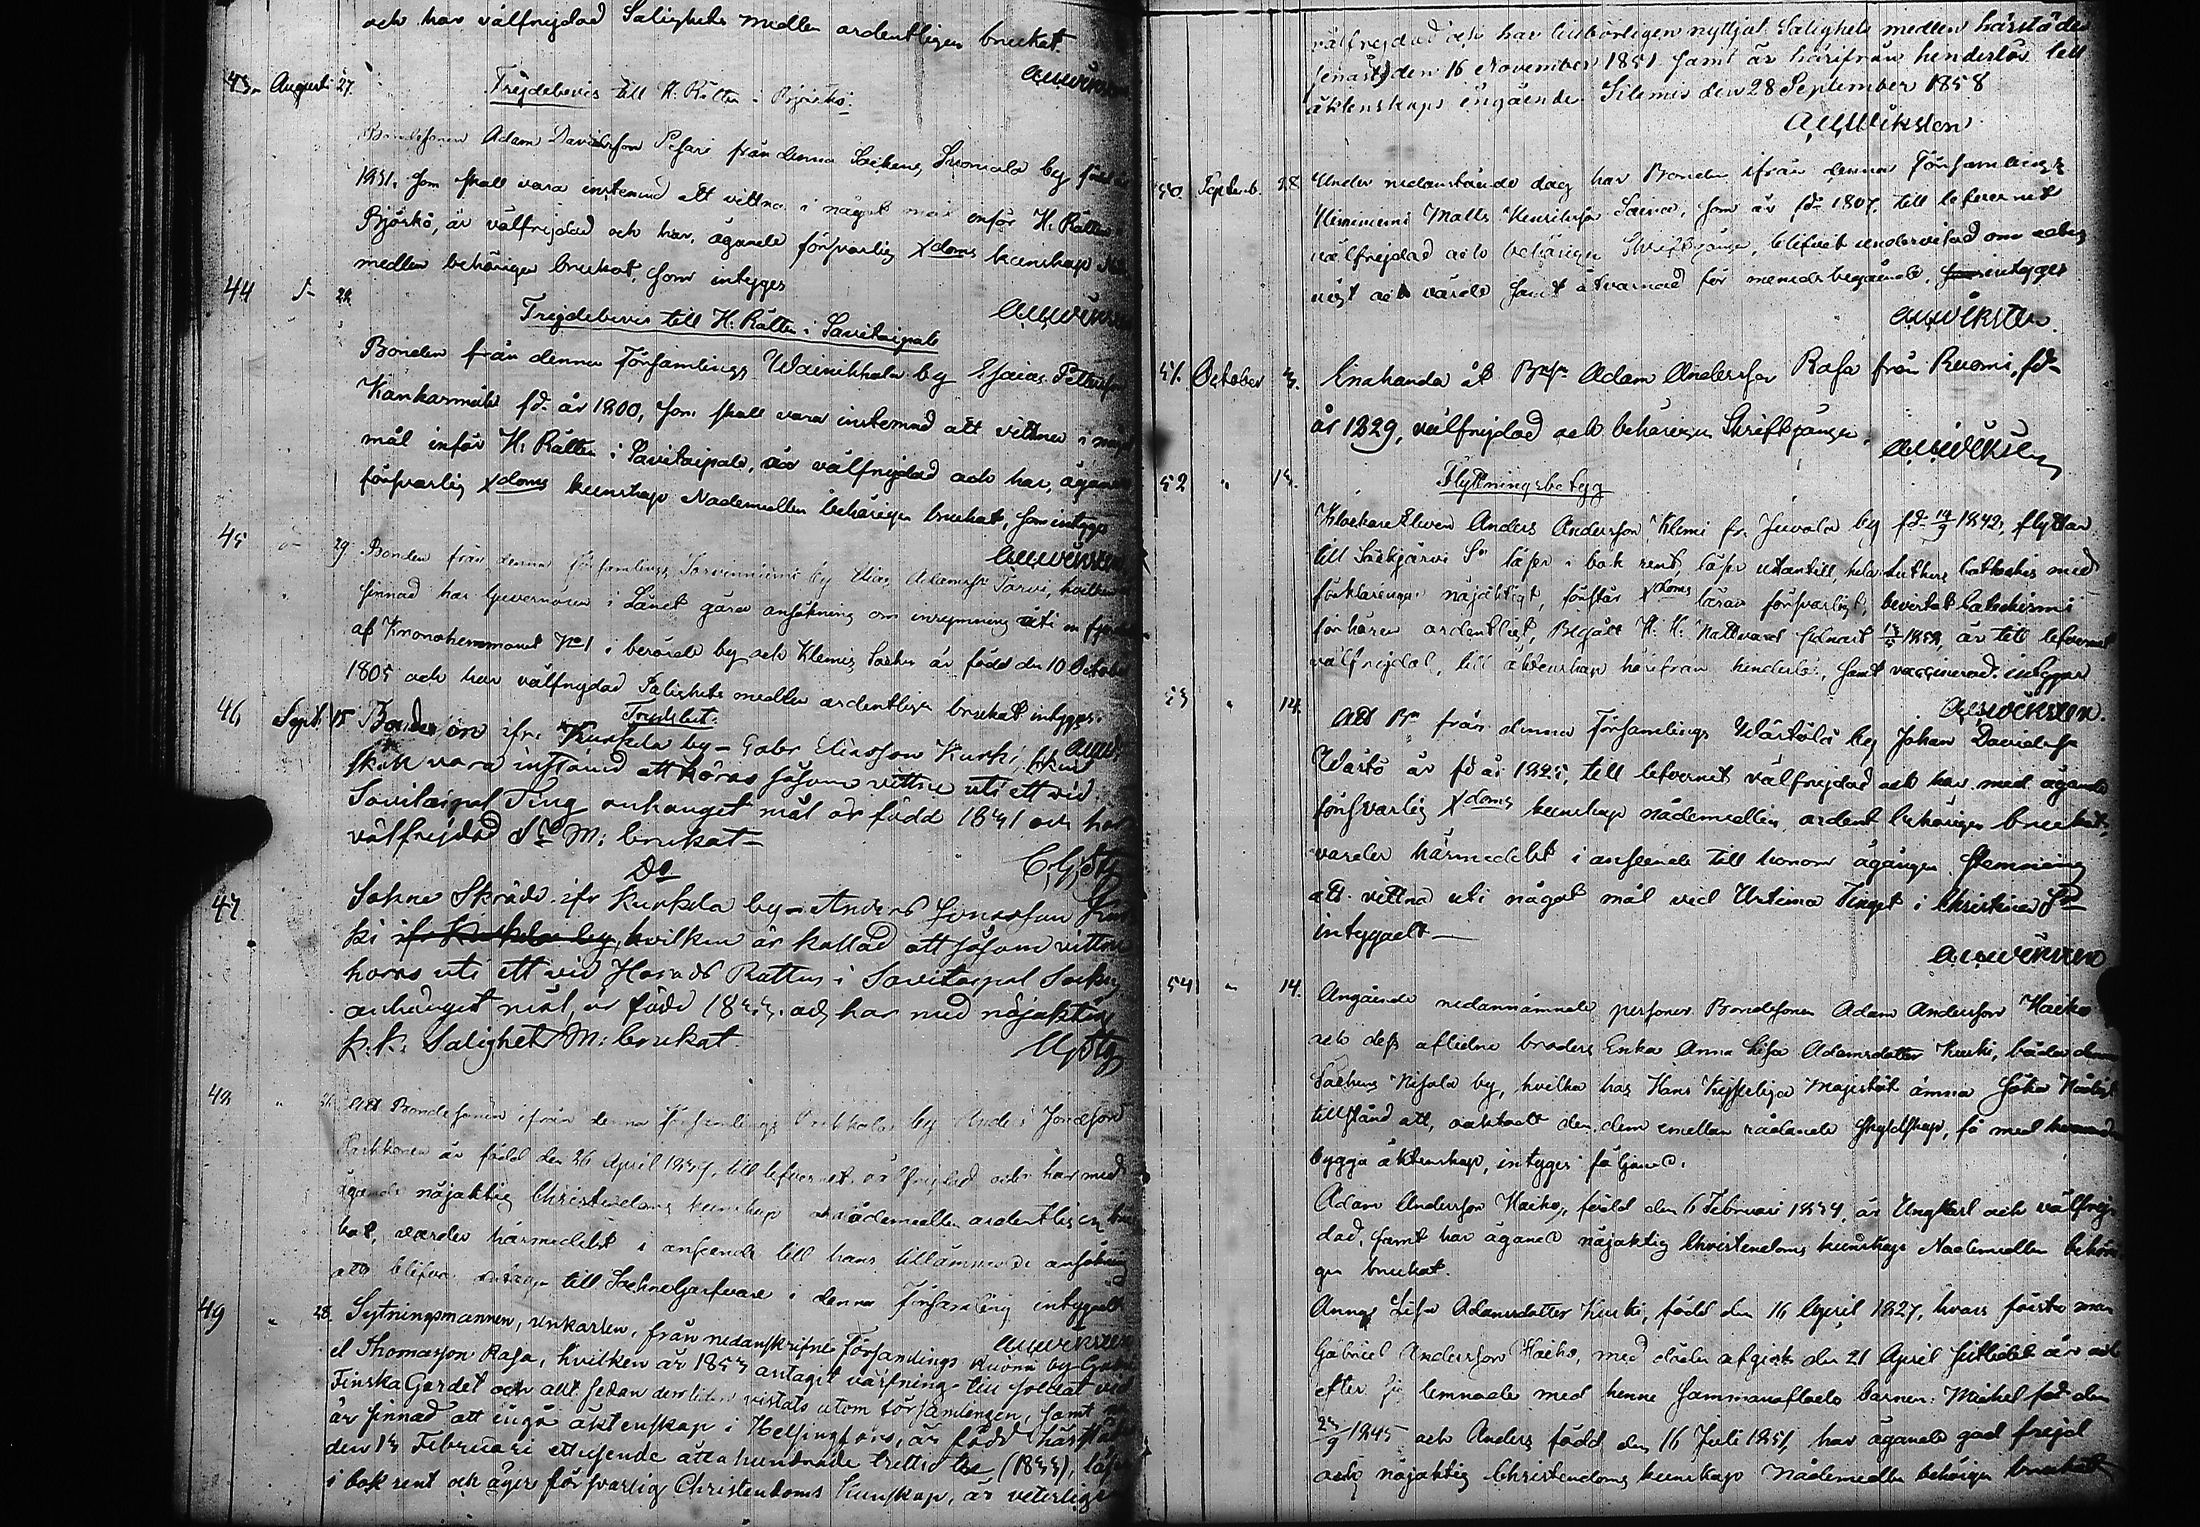 och har välfrejdad Salighets medlen ordentligen brukat.
AWikste
43. Augusti 27.
Frejdebevis till H. Rätten i Björkö.
Bondesonen Adam Davidsson Pesari från denna Sockens Suomala by född
1831. som skall vara instemnd att vittna i något mål inför H. Rätten
Björkö, är välfrejdad och har, ägande försvarlig Xdoms kunskap Nåd
medlen behörigen brukat, som intygges
44 d- 28.
Frejdebevis till H. Rätten i Savitaipale
Bonden från denna Församlings Wainikkala by Esaias Pettersson
Kankarmäki fd. år 1800, som skall vara instemnd att vittna i något
mål inför H. Rätten i Savitaipale, är välfrejdad och har, ägande
försvarlig Xdoms kunskap Nademedlen behörigen brukat, som intyges
45 d- 29.
Bonden från denna församlings by Elias Adamsson Tarvi, hvilken
sinnad hos Guvernören i Länet göra ansökning om inrymning uti en
af Kronohemmanet No 1 i berörde by och Klemis Socken är född den 10 October
1805 och har välfrejdad Salighets medlen ordentligen brukat intyges.
46 Sept. 15
Frejdebet.
Bondeson ifr. Kurkela by - Gabr Eliasson Kurki,
skall vara instämd att höras såsom vittne uti ett vid
Savitaipal Ting anhänget mål är född 1831 och har
välfrejdad S M: brukat -
47.
Do
Sokne Skräd. ifr Kurkela by - Anders Jonasson Kur
ki ifr Kurkela by, hvilken är kallad att såsom vittne
höras uti ett vid Härads Rätten i Savitaipal Socken
anhänget mål, är född 1833. och har med nöjaktig
k.k. Salighets M: brukat.
48 "
Att Bondesonen ifrån denna Församlings by Anders Jonasson
är född den 26 April 1839, till lefvernet välfrejdad och har med
ägande nöjaktig Christendoms kunskap nådemedlen ordentligen bru
kat, varder härmedelst i anseende till hans tillämnade ansökning
att blifva antagen till Sockne Garfvare i denna Församling intygadt
49 " 28.
Sytningsmannen, ynkarlen, från nedanskrifne Församlings Ruomi by Gabri
el Thomasson Rasa, hvilken år 1853 antagit värfning till soldat vid
Finska Gardet och allt sedan den tiden vistats utom församlingen, samt nu
är sinnad att ingå äktenskap i Helsingfors, är född härstädes
den 13 Februari ettusende åttahundrade trettio tre (1833), läser
i bok rent och äger försvarlig Christendoms kunskap, är veterligen
välfrejdad och har tillbörligen nyttjat Salighets medlen härstädes
senast den 16 November 1851 samt är härifrån hinderslös till
äktenskaps ingående. Klemis den 28 September 1858
AWiksten
50. Septemb. 28
Under nedanstående dag har Bonden ifrån denna Församlings
Matts Henriksson som är fd. 1807, till lefvernet
välfrejdad och behörigen Skriftgången, blifvit undervisad om edens
vigt och värde samt åtvarnad för menedsbegående, som intyges
AWiksten
51. October 3.
Enahanda åt Bs. Adam Andersson Rasa från Ruomi, fd-
år 1829, välfrejdad och behörigen Skriftgången.
52 " 13.
Flyttningsbetyg
KlockareEleven Anders Andersson Klemi fr. Juvola by fd. 1842, flyttar
till Säkkjärvi Sn läser i bok rent, läser utantill, hela Luthers Cathechis med
förklaringar nöjaktigt, förstår Xdoms läran försvarligt, bevistat Catechismi
förhören ordentligt, Begått H. H. Nattvard sednast 1858, är till lefvernet
välfrejdad, till äktenskap härifrån hinderlös, samt vaccinerad. intygar
AWiksten.
53 " 14.
Att Bn från denna Församlings Wärtölä by Johan Davidsson
Wärtö är fd år 1825, till lefvernet välfrejdad och har med ägande
försvarlig Xdoms kunskap nådemedlen ordent behörigen brukat,
varder härmedelst i anseende till honom ågången stemning
att vittna uti något mål vid Urtima Tinget i Christina Sn
intygadt -
54 " 14.
Angående nedannämnde personer Bondesonen Adam Andersson Haiko
och dess aflidne broders Enka Anna Lisa Adamsdotter Kurki, båda denna
Sockens by, hvilka hos Hans Kejserliga Majestät ämna söka Nådigt
tillstånd att, oaktadt den dem emellan rådande skyldskap, få med hvarandra
bygga äktenskap, intyges följande.
Adam Andersson Haiko, född den 6 Februari 1834, är Ungkarl och välfrej-
dad, samt har ägande nöjaktig Christendoms kunskap Nådemedlen behöri
gen brukat.
Anna Lisa Adamsdotter Kurki, född den 16 April 1827, hvars förste man
Gabriel Andersson Haiko, med döden afgick den 21 April sistledit år och
efter sig lemnade med henne sammanaflade barnen: Mickel född den
23/9 1845 och Anders född den 16 Juli 1851, har ägande god frejd
och nöjaktig Christendoms kunskap Nådemedlen behörigen brukat